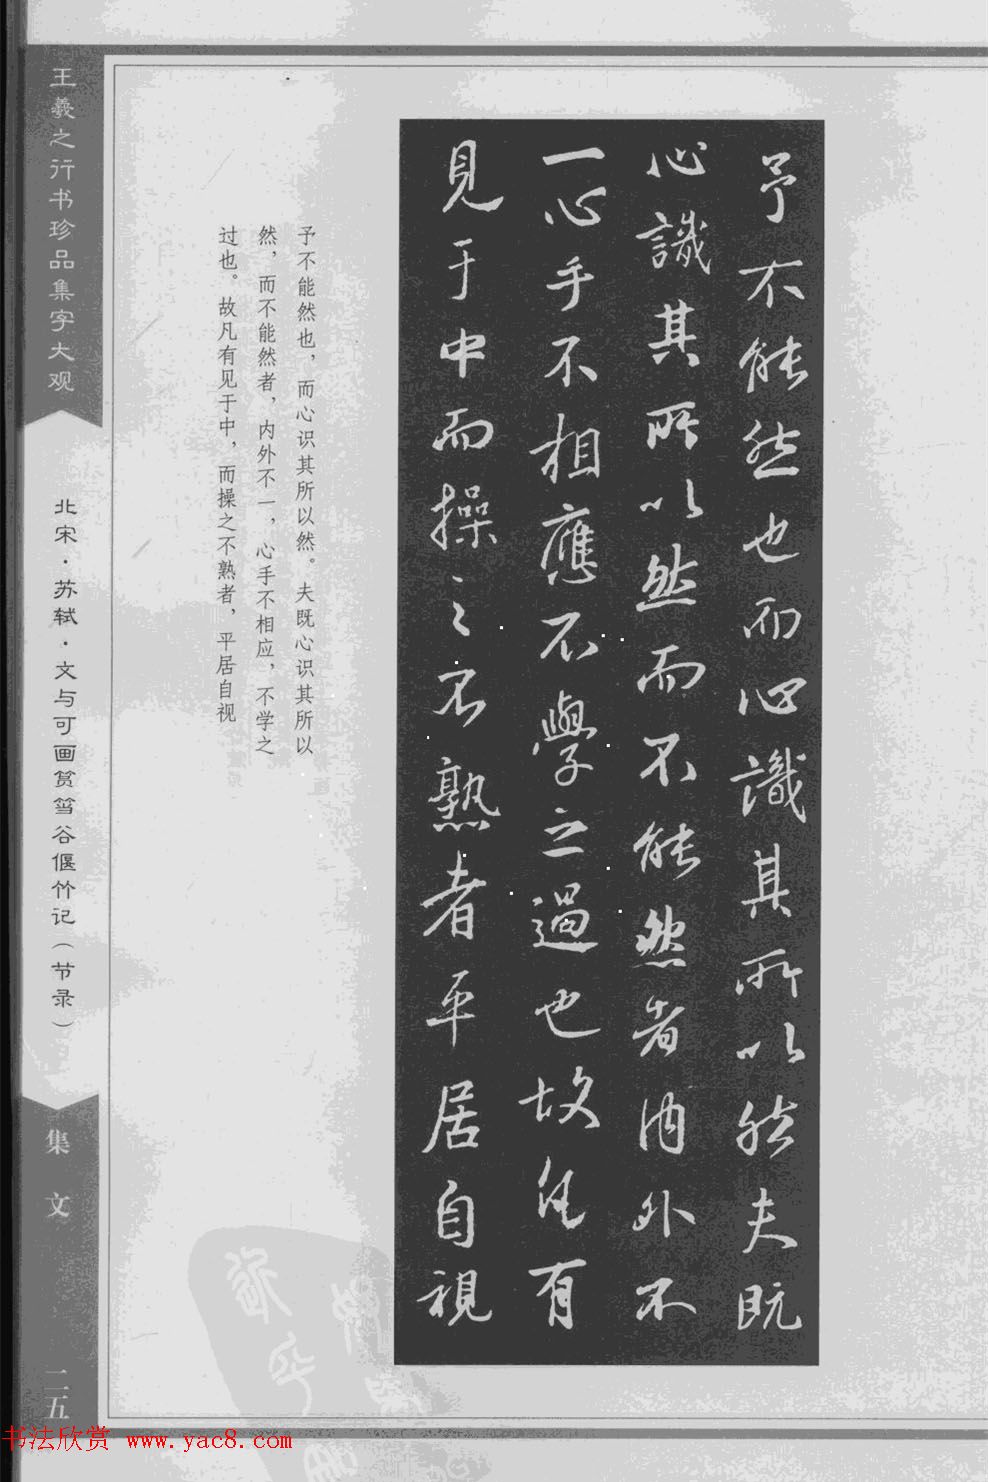 予不能然也而心識其所以然夫既
心識其所以然而不能然者内外不
一心手不相應不學之過也故凡有
見于中而操之不熟者平居自視
予不能然也，而心识其所以然。夫既心识其所以
然，而不能然者，内外不一，心手不相应，不学之
过也。故凡有见于中，而操之不熟者，平居自视
王羲之行书珍品集字大观
北宋·苏轼·文与可画筼筜谷偃竹记（节录）
集文
二五
书法欣赏 www.yac8.com